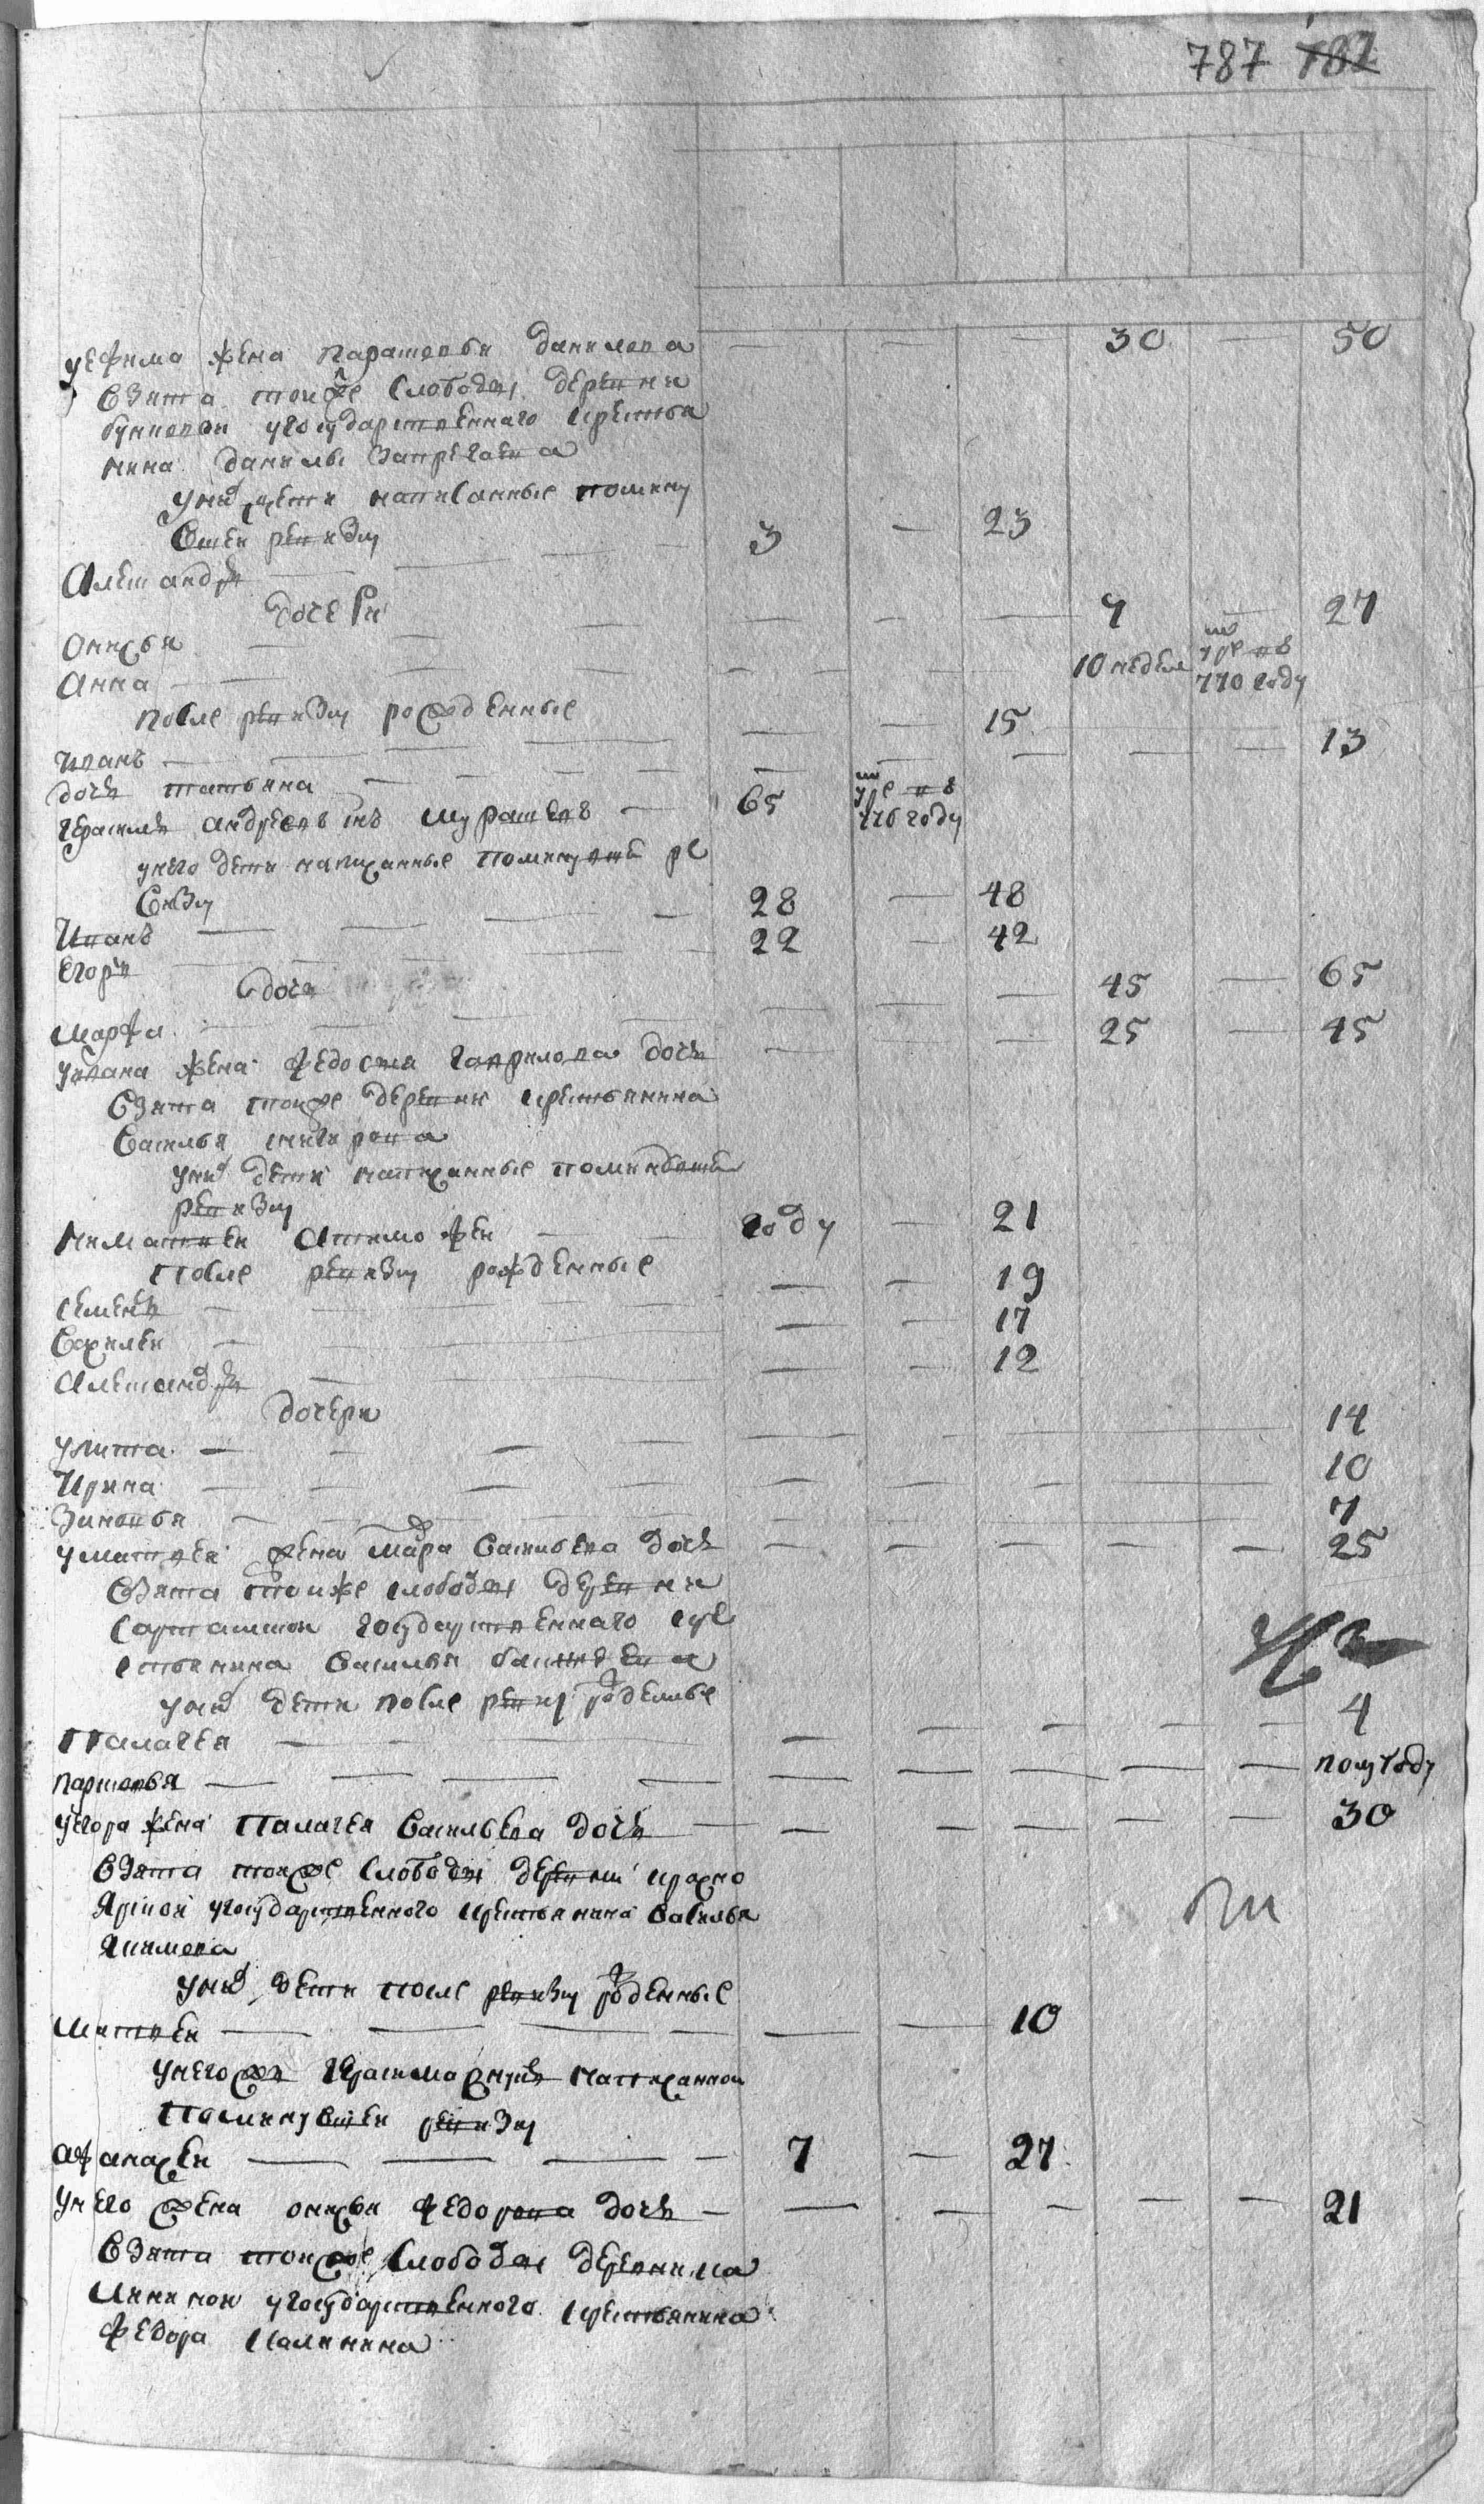 787 782
уефима жена парасковья данилова — — — 30 — 50
взята тоиже слободы деревни
государственнаго крестья
нина данилы
униⷯ дети написанные помину
вшеи ревизи
Александръ — — — 3 — 23
дочери
Онисья — — — — — 7 — 27
Анна — — — — — 10 недель умре въ 770 году
после ревизи рожденные
иванъ — — — — — 15
дочь татьяна — — — — — — 13
герасимъ андреевъ снъ муратовъ — 65 умре въ 776 году
унего дети написанные поминувшей ре
визи
Иванъ — — — 28 — 48
егоръ — — — 22 — 42
дочь
марфа — — — — — — 45 — 65
уивана жена федосья гаврилова дочь — — — 25 — 45
взята тоиже деревни крестьянина
василья
униⷯ дети написанные поминувшей
ревизи
году — 21
после ревизи рожденные
семенъ — — — — — 19
василеи — — — — 17
александръ — — — — 12
дочери
улита — — — — — — 14
Ирина — — — — — — 10
Зиновья — — — — — — 7
уматвея жена марⷴа васильева дочь — — — — — 25
взята тоиже слободы деревни
государственнаго кре
стьянина василья
униⷯ дети после ревизи рожденные
Палагея — — — — — — 4
парасковья — — — — — — полугоду
уегора жена палагея васильева дочь — — — — — 30
взята тоиже слободы деревни красно
ярской государственного крестьянина василья
якимова
униⷯ дети после ревизи рожденные
матвеи — — — — — — 10
унегожъ герасима внукъ написаннои
поминувшеи ревизи
афанасеи — — — — 7 — 27
унего жена онисья федорова дочь — — — — — 21
взята тоиже слободы деревни ка
лининои государственного крестьянина
федора калинина